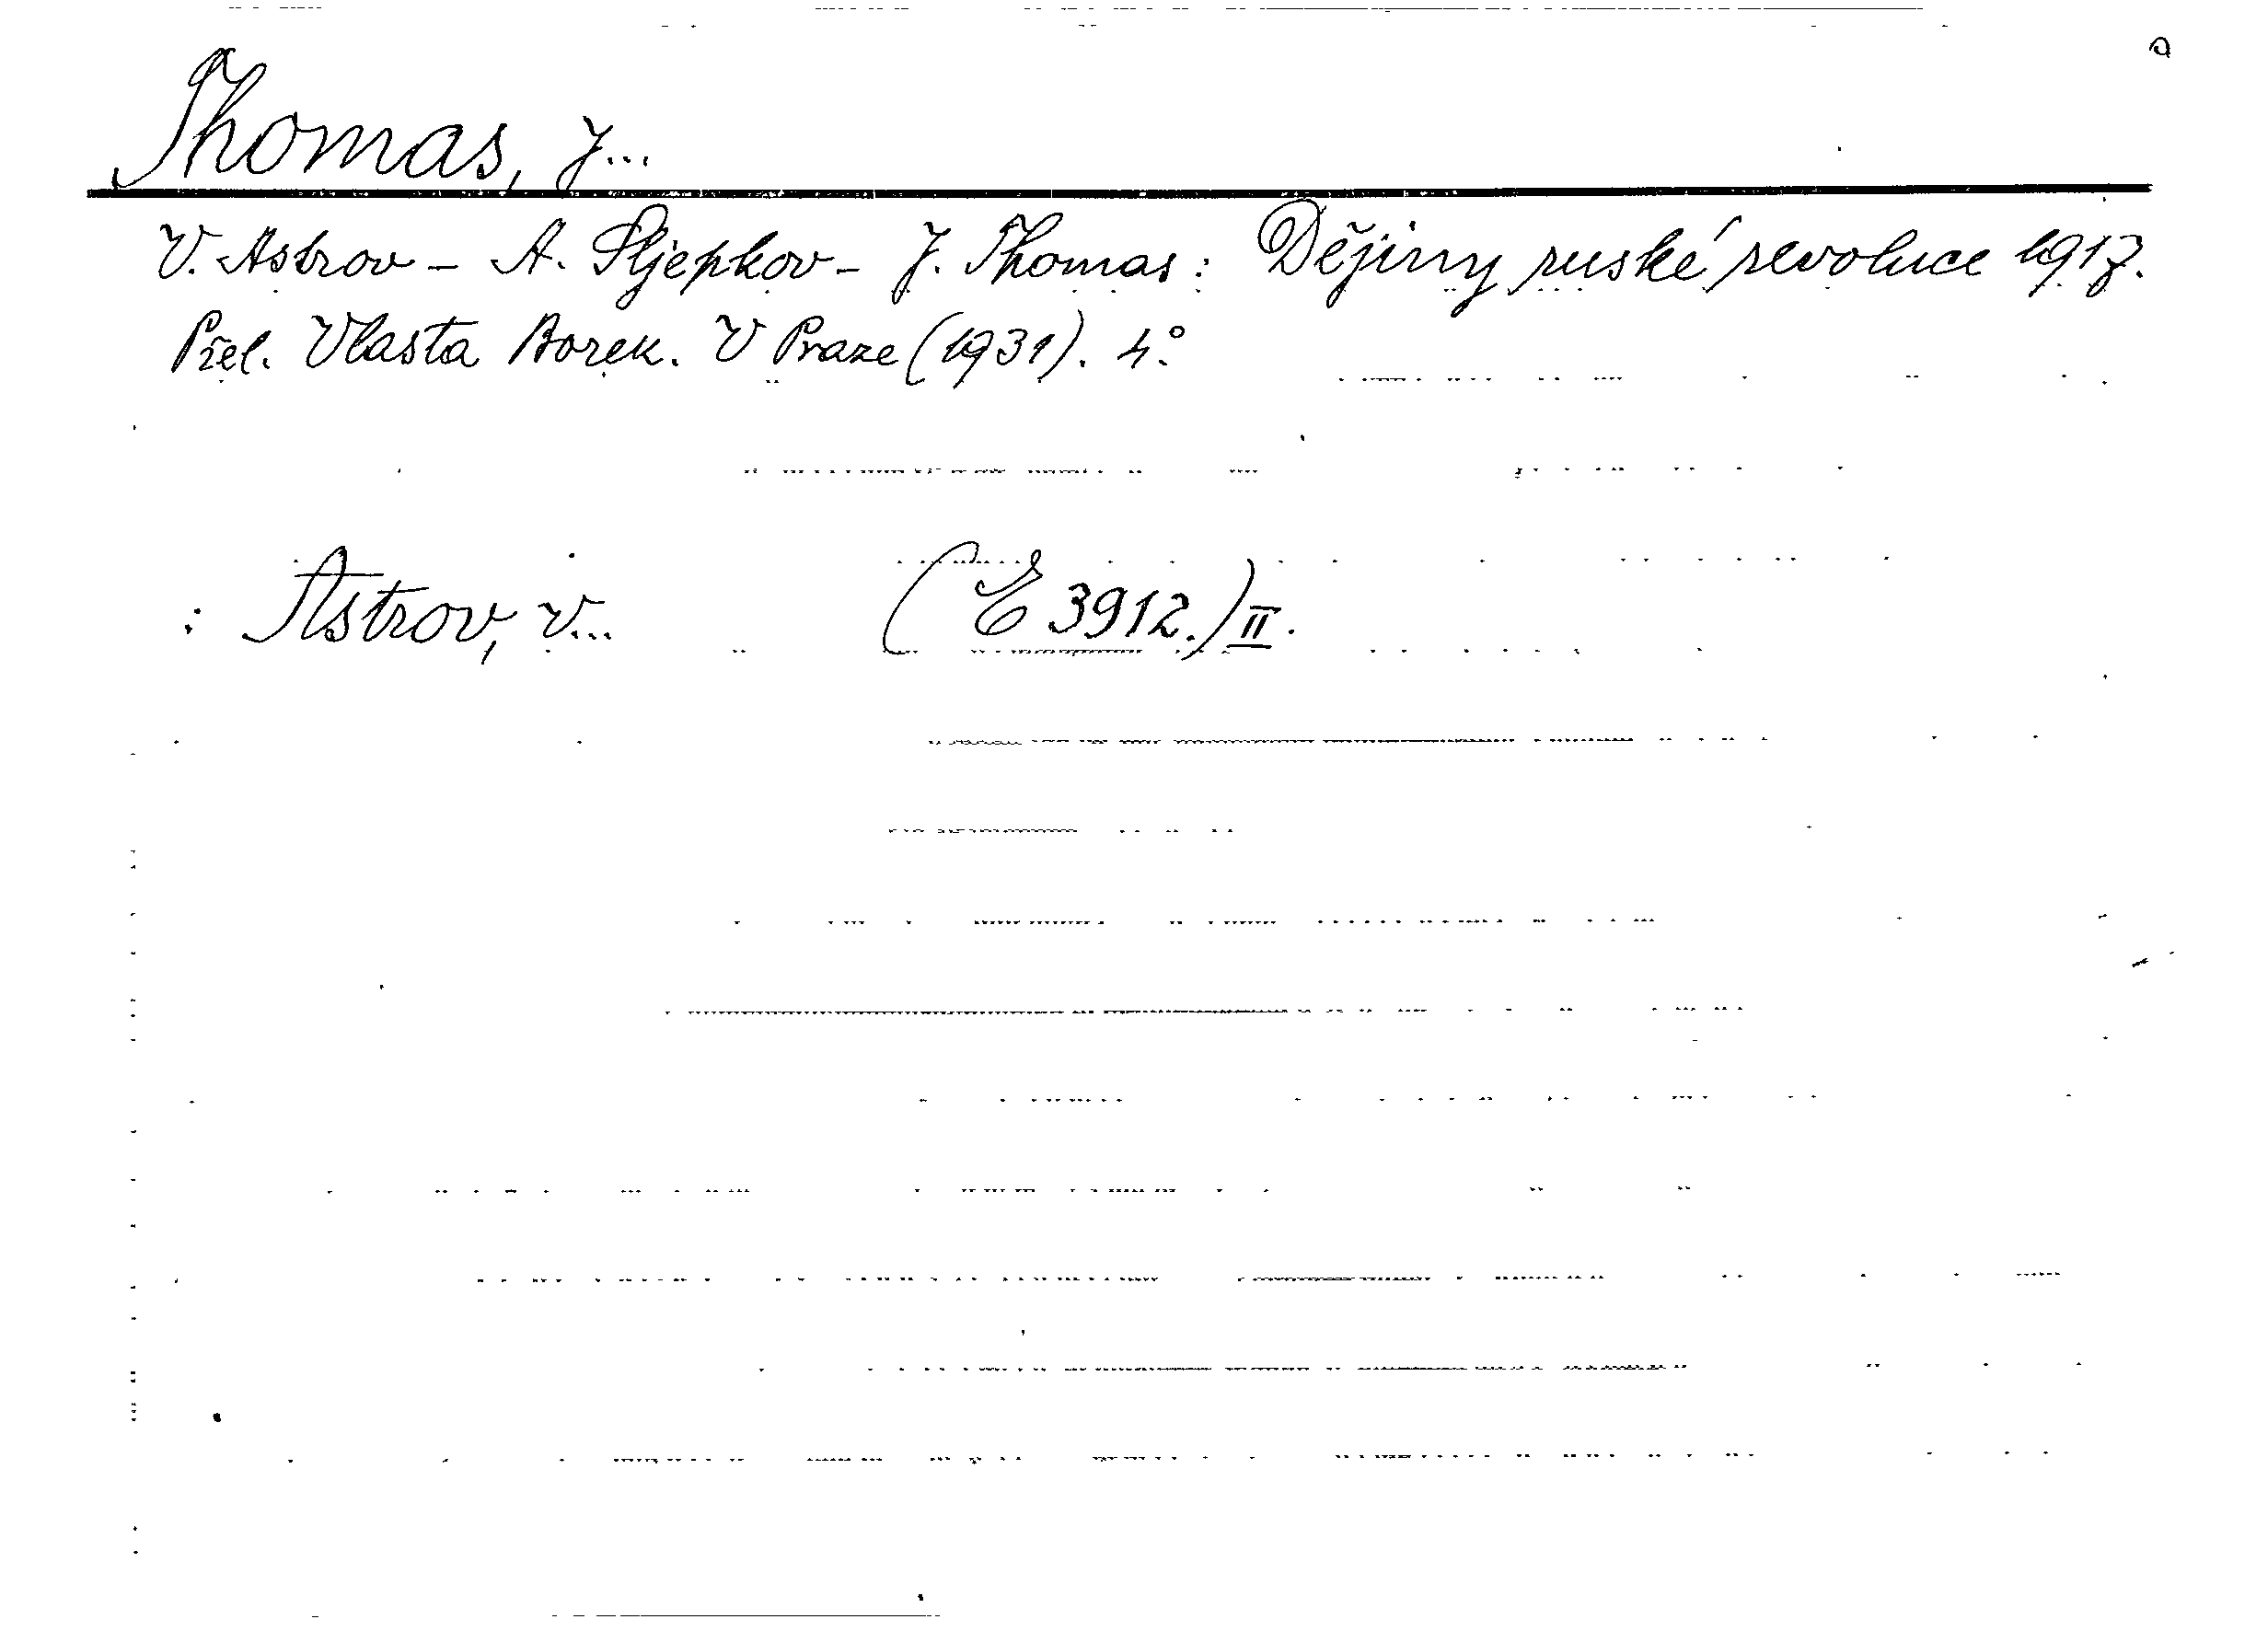 Thomas, J...
V. Astrov - A. Sljepkov - J. Thomas: Dějiny ruské revoluce 1917.
Přel. Vlasta Borek. V Praze (1931). 4°
: Astrov, V... (E 3912.) II.